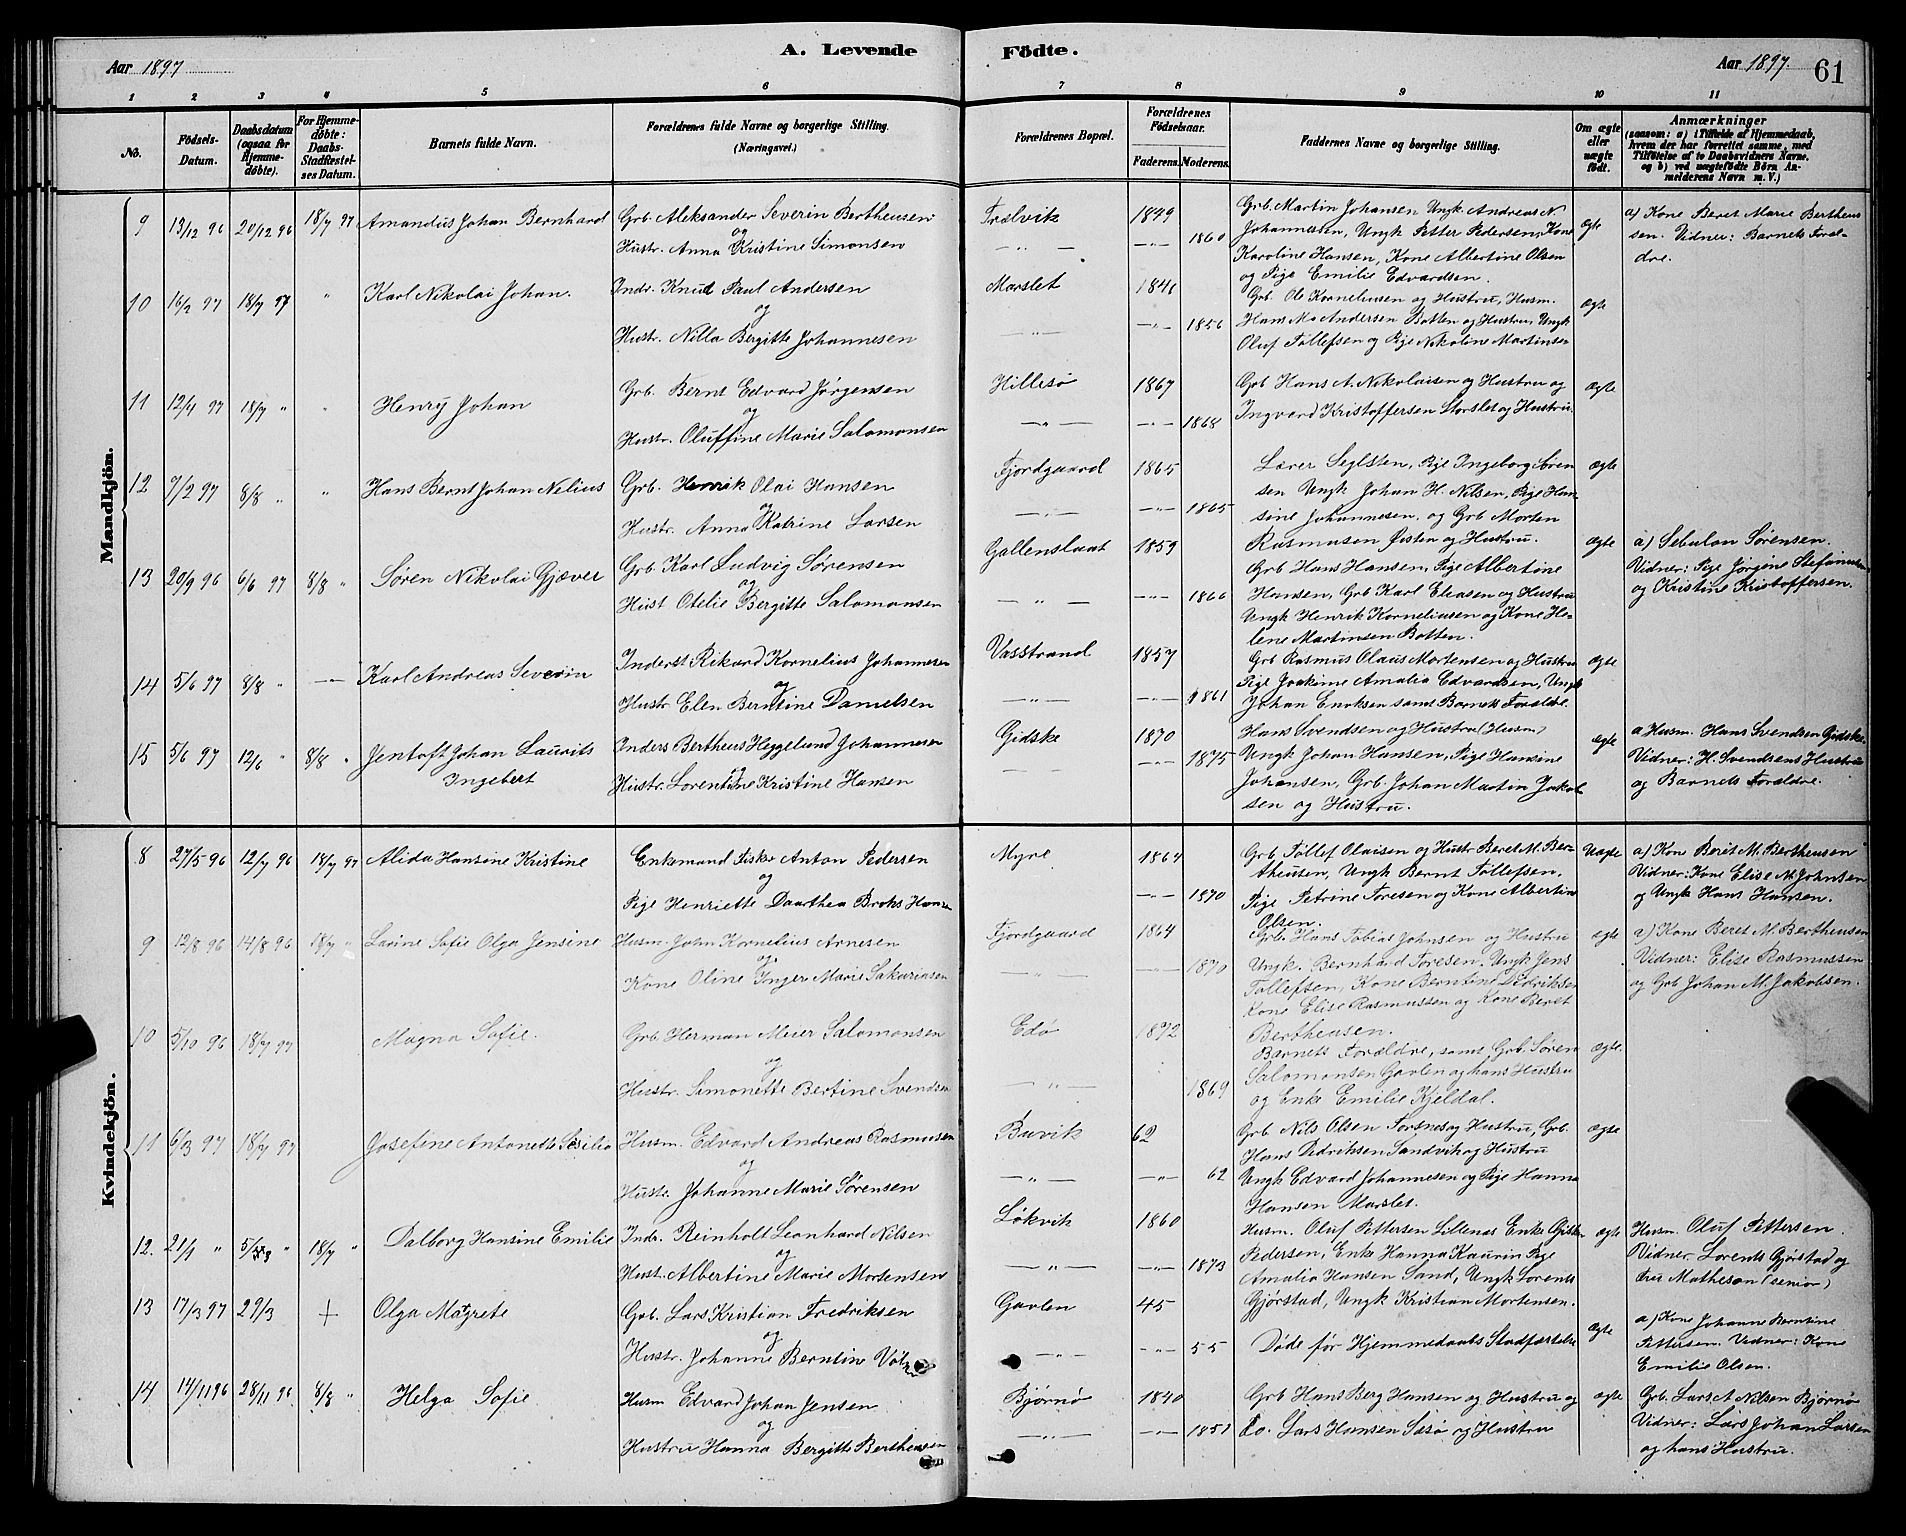 A. Levende Födte.
Aar 1897
Aar 1897. 61
1 2 3 4 5 6 7 8 9 10 11
No.
Födsels-Datum.
Daabsdatum (ogsaa for Hjemme-döbte).
For Hjemme-döbte: Daabs-Stadfæstel-ses Datum.
Barnets fulde Navn.
Forældrenes fulde Navne og borgerlige Stilling. (Næringsvei.)
Forældrenes Bopæl.
Forældrenes Födselsaar.
Faderens. Moderens.
Faddernes Navne og borgerlige Stilling.
Om ægte eller uægte født.
Anmærkninger
(saasom: a) i Tilfælde af Hjemmedaab, hvem der har forrettet samme, med Tilföielse af to Daabsvidners Navne, og b) ved uægtefödte Börn An-melderens Navn m. V.)
Mandkjön.
9 13/12 96 20/12 96 18/7 97 Amandus Johan Bernhard
Grb. Aleksander Severin Bertheusen
og
Hustr. Anna Kristine Simonsen
Trælvik 1849
1860
Grb. Martin Johansen Ungk. Andreas N.
Johannesen, Ungk Petter Pedersen, Kone
Karoline Hansen, Kone Albertine Olsen
og Pige Emilie Edvardsen.
ægte
a) Kone Beret Marie Bertheu
sen. Vidner: Barnets Foræl-
dre.
10 14/2 97 18/7 97 " Karl Nikolai Johan.
Indr. Knut Paul Andersen
og
Hustr. Nilla Bergitte Johannesen
Marslet 1846
1856
Grb. Ole Korneliusen og Hustru, Husm.
Hans M. Andersen Botten og Hustru, Ungk
Oluf Tollefsen og Pige Nikoline Martinsen
ægte
11 12/4 97 18/7 " " Henry Johan
Grb. Bernt Edvard Jørgensen
og
Hustr. Oluffine Marie Salomonsen
Hillesø 1867
1868
Grb Hans A. Nikolaisen og Hustru og
Ingvard Kristoffersen Storslet og Hustru.
ægte
12 7/2 97 8/8 " " Hans Bernt Johan Nelius
Grb. Henrik Olai Hansen
og
Hustr. Anna Katrine Larsen
Fjordgaard 1865
1865
Lærer Seglsten, Pige Ingeborg Søren
sen Ungk Johan H. Nilsen, Pige Han
sine Johannesen, og Grb Morten
Rasmusen Østen og Hustru.
ægte
13 20/9 96 6/6 97 8/8 " Søren Nikolai Gjæver
Grb. Karl Ludvig Sørensen
og
Hust Otelie Bergitte Salomonsen
1859
1866
Grb Hans Hansen, Pige Albertine
Hansen, Grb Karl Eleasen og Hustru
Ungk Henrik Korneliusen og Kone He-
lene Martinsen Botten.
ægte
a) Sebulon Sørensen.
Vidner: Pige Jørgine Stefansen
og Kristine Kristoffersen.
14 5/6 97 8/8 " Karl Andreas Severin
Inderst Rikard Kornelius Johannesen
og
Hustr. Elen Berntine Danielsen
Vasstrand 1857
1861
Grb Rasmus Olaus Mortensen og Hustru
Pige Joakime Amalia Edvardsen, Ungk
Johan Enoksen samt Barnets Forældre.
ægte
15 5/6 97 12/6 " 8/8 " Jentoft Johan Laurits
Ingebert
Inders Bertheus Heggelund Johannesen
og
Hustr. Lorentine Kristine Hansen
Gidske 1870
1875
Hans Svendsen og Hustru (Husm)
Ungk Johan Hansen, Pige Hansine
Johansen, Grb. Johan Martin Jakob
sen og Hustru.
ægte
a Husm. Hans Svendsen Gidske
Vidner: H. Svendsens Hustru
og Barnets Forældre.
Kvindekjön.
8 27/5 96 12/7 96 18/7 97 Alida Hansine Kristine
Enkemand Fisker Anton Pedersen
og
Pige Henriette Daarthea Broks Hansen
Myre 1864
1870
Grb. Tollef Olaisen og Hustr Beret M. Ber-
theusen, Ungk Bernt Tollefsen.
Pige Petrine Toresen og Kone Albertine
Olsen.
Uægte
a) Kone Beret M. Bertheusen
Vidner: Kone Elise M. Johnsen
og Ungk Hans Hansen.
9 12/8 96 14/8 96 18/7 " Larine Sofie Olga Jensine
Husm. John Kornelius Arnesen
og
Kone Oline Inger Marie Sakariasen
Fjordgaard 1864
1870
Grb. Hans Tobias Johnsen og Hustru
Ungk. Bernhard Toresen. Ungk Jens
Tollefsen, Kone Berntine Didriksen
Kone Elise Rasmussen og Kone Beret
Bertheusen.
ægte
a) Kone Beret M. Bertheusen
Vidner: Elise Rasmussen
og Grb Johan M. Jakobsen.
10 5/10 96 18/7 97 Magna Sofie.
Grb. Herman Meier Salomonsen
og
Hustr. Simonette Bertine Svendsen
Edø 1872
1869
Barnets Forældre, samt Grb. Søren
Salomonsen Gavlen og hans Hustru
og Enke Emilie Kjeldal.
ægte.
11 6/3 97 18/7 97 Josefine Antonette Sesilia
Husm. Edvard Andreas Rasmusen
og
Hustr. Johanne Marie Sørensen
Buvik 62
62
Grb. Nils Olsen Torsnes og Hustru, Grb.
Hans Didriksen Sandvik og Hustru
Ungk Edvard Johannesen og Pige Hanna
Hansen Marslet.
ægte
12. 21/1 " " 18/7 " Dalborg Hansine Emilie
Indr. Reinholt Leonhard Nilsen
og
Hust. Albertine Marie Mortensen
Løkvik 1860
1873
Husm. Oluf Pettersen Lillenes Enke
Pedersen, Enke Hanna Kaurin Pige
Amalia Hansen Sand, Ungk Lorents
Gjørstad, Ungk Kristian Mortensen.
ægte
Husm. Oluf Pettersen.
Vidner. Lorents Gjørstad og
Fru Matheson (senior)
13 17/3 97 29/3 + Olga Margrete
Grb. Lars Kristian Fredriksen
og
Hustr. Johanne Berntine
Gavlen 45
55
Døde før Hjemmedaabs Stadfæstelse
ægte
a) Kone Johanne Berntine
Pettersen. Vidner: Kone
Emilie Olsen.
14 14/11 96 28/11 96 8/8 " Helga Sofie
Husm Edvard Johan Jensen
og
Hustru Hanna Bergitte Bertheusen
Bjørnø 1840
1851
Grb Hans Berg Hansen og Hustru og
do. Lars Hansen Sesø og Hustru
ægte
Grb. Lars A Nilsen Bjørnø
Vidner: Lars Johan Larsen
og hans Hustru.